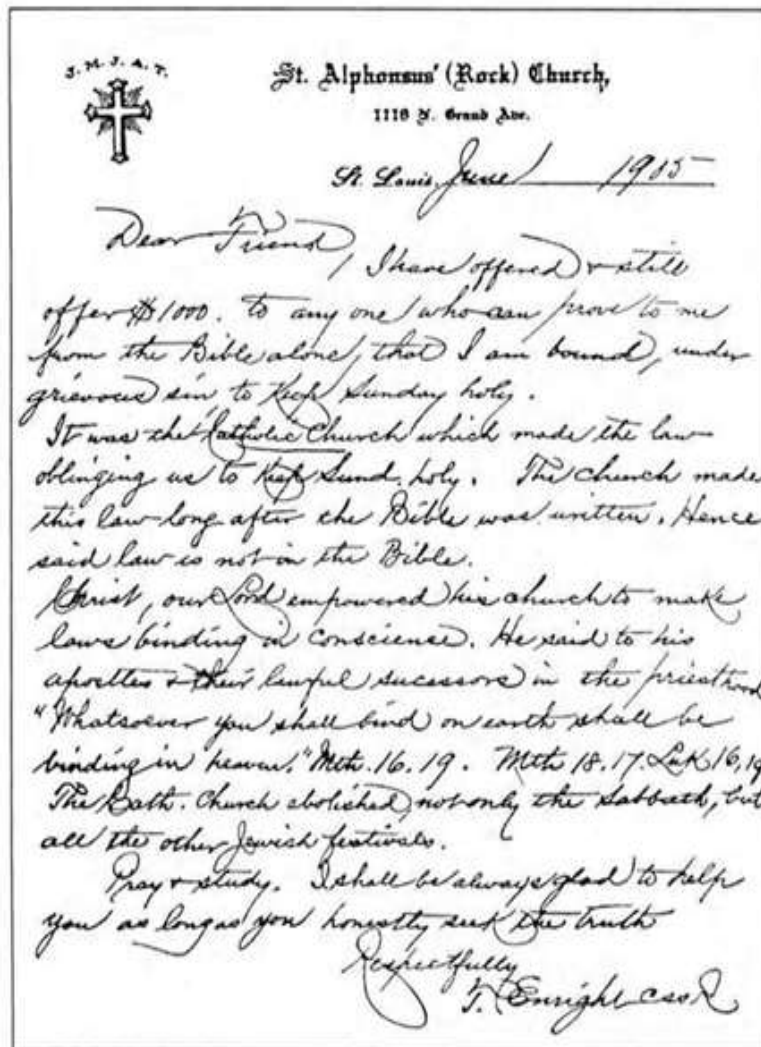 J. M. J. A. T.
St. Alphonsus' (Rock) Church,
1118 N. Grand Ave.
St. Louis, June 1905
Dear Friend,
I have offered & still
offer $1000. to any one who can prove to me
from the Bible alone, that I am bound, under
grievous sin, to Keep Sunday holy.
It was the Catholic Church which made the law
oblinging us to Keep Sund. holy. The church made
this law long after the Bible was written. Hence
said law is not in the Bible.
Christ, our Lord empowered his church to make
laws binding in consciense. He said to his
apostles & their lawful sucessors in the priesthood
"Whatsoever you shall bind on earth shall be
binding in heaven." Mth. 16. 19. Mth 18. 17. Luk 16, 19
The Cath. Church abolished not only the Sabbath, but
all the other Jewish festivals.
Pray & study. I shall be always glad to help
you as long as you honestly seek the truth
Respectfully
T. Enright CSSR